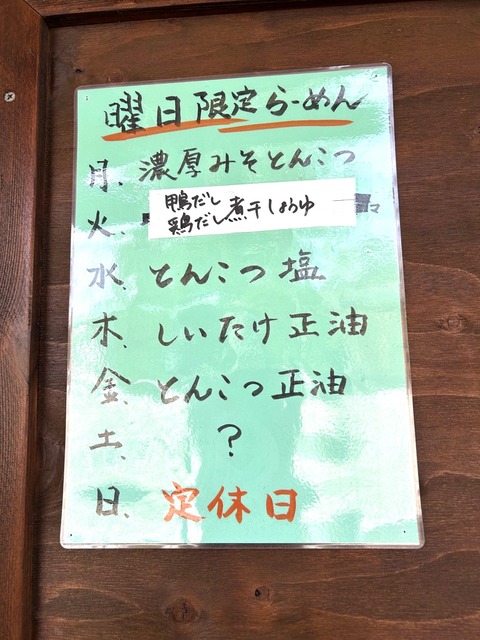 曜日限定らーめん
月、濃厚みそとんこつ
鴨だし
火、鶏だし煮干しょうゆ マ
水、とんこつ塩
木、しいたけ正油
金、とんこつ正油
土、?
日、定休日